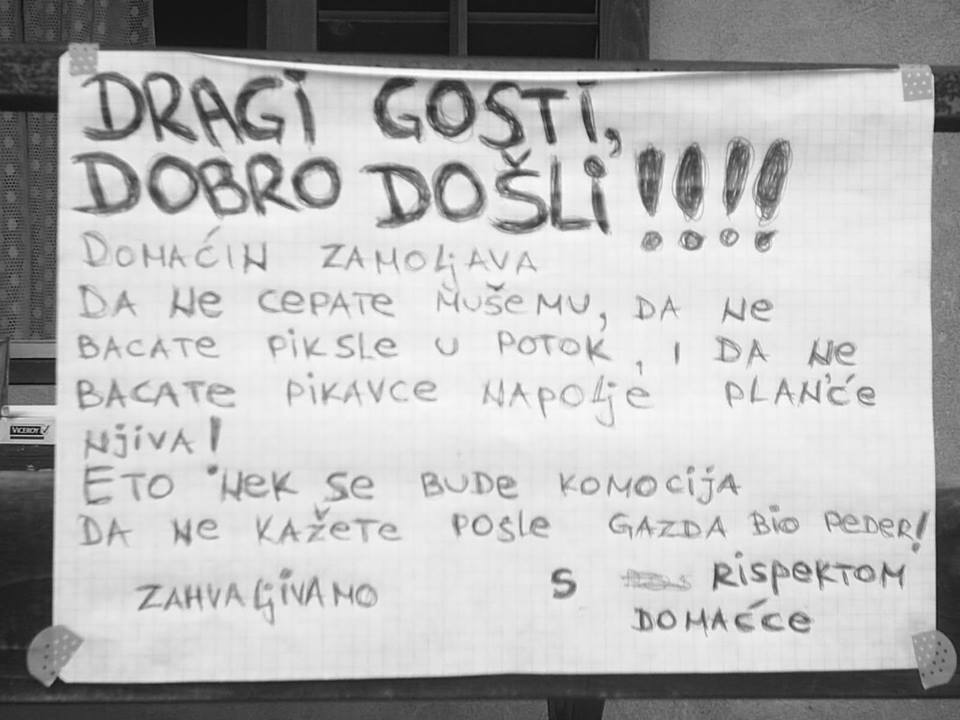 DRAGI GOSTI,
DOBRO DOŠLI !!!!
DOMAĆIN ZAMOLJAVA
DA NE CEPATE MUŠEMU, DA NE
BACATE PIKSLE U POTOK, I DA NE
BACATE PIKAVCE NAPOLJE PLANĆE
NJIVA!
ETO NEK SE BUDE KOMOCIJA
DA NE KAŽETE POSLE GAZDA BIO PEDER!
ZAHVALJIVAMO S RISPEKTOM
DOMAĆĆE
VICEROY